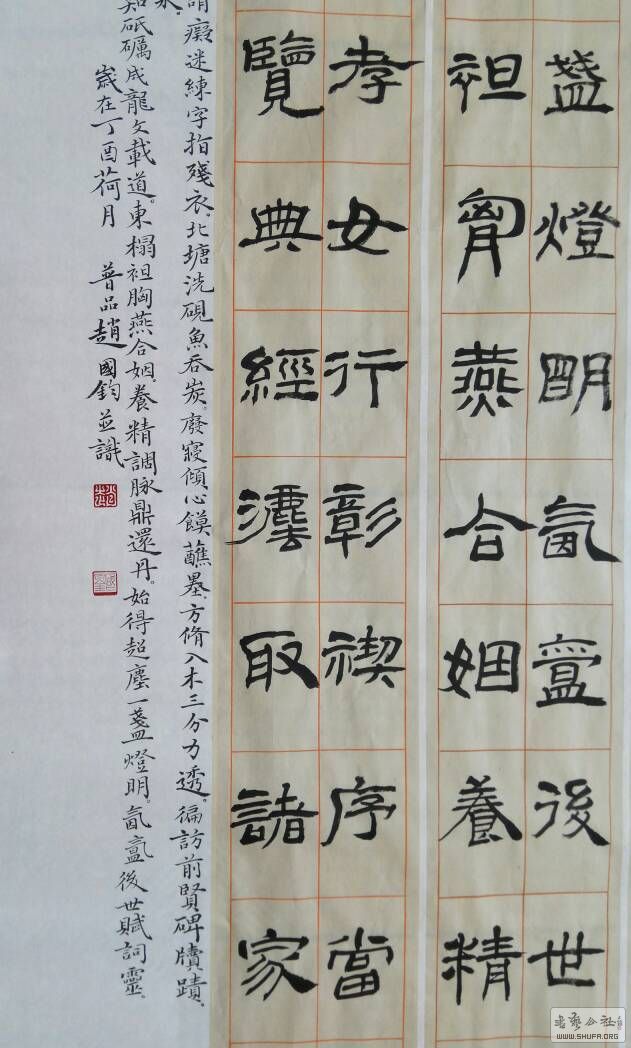 盞燈明氤氳後世
袒胷燕合姻養精
孝女行彰禊序當
覽典經灋取諸家
癡迷練字指殘衣。北塘洗硯魚吞炭。廢寢傾心饃蘸墨。方脩入木三分力透。徧訪前賢碑牘蹟、
知砥礪成龍文載道。東榻袒胸燕合姻。養精調脉鼎還丹。始得超塵一盞燈明。氤氳後世賦詞靈。
歲在丁酉荷月 普品趙國鈞並識
WWW.SHUFA.ORG